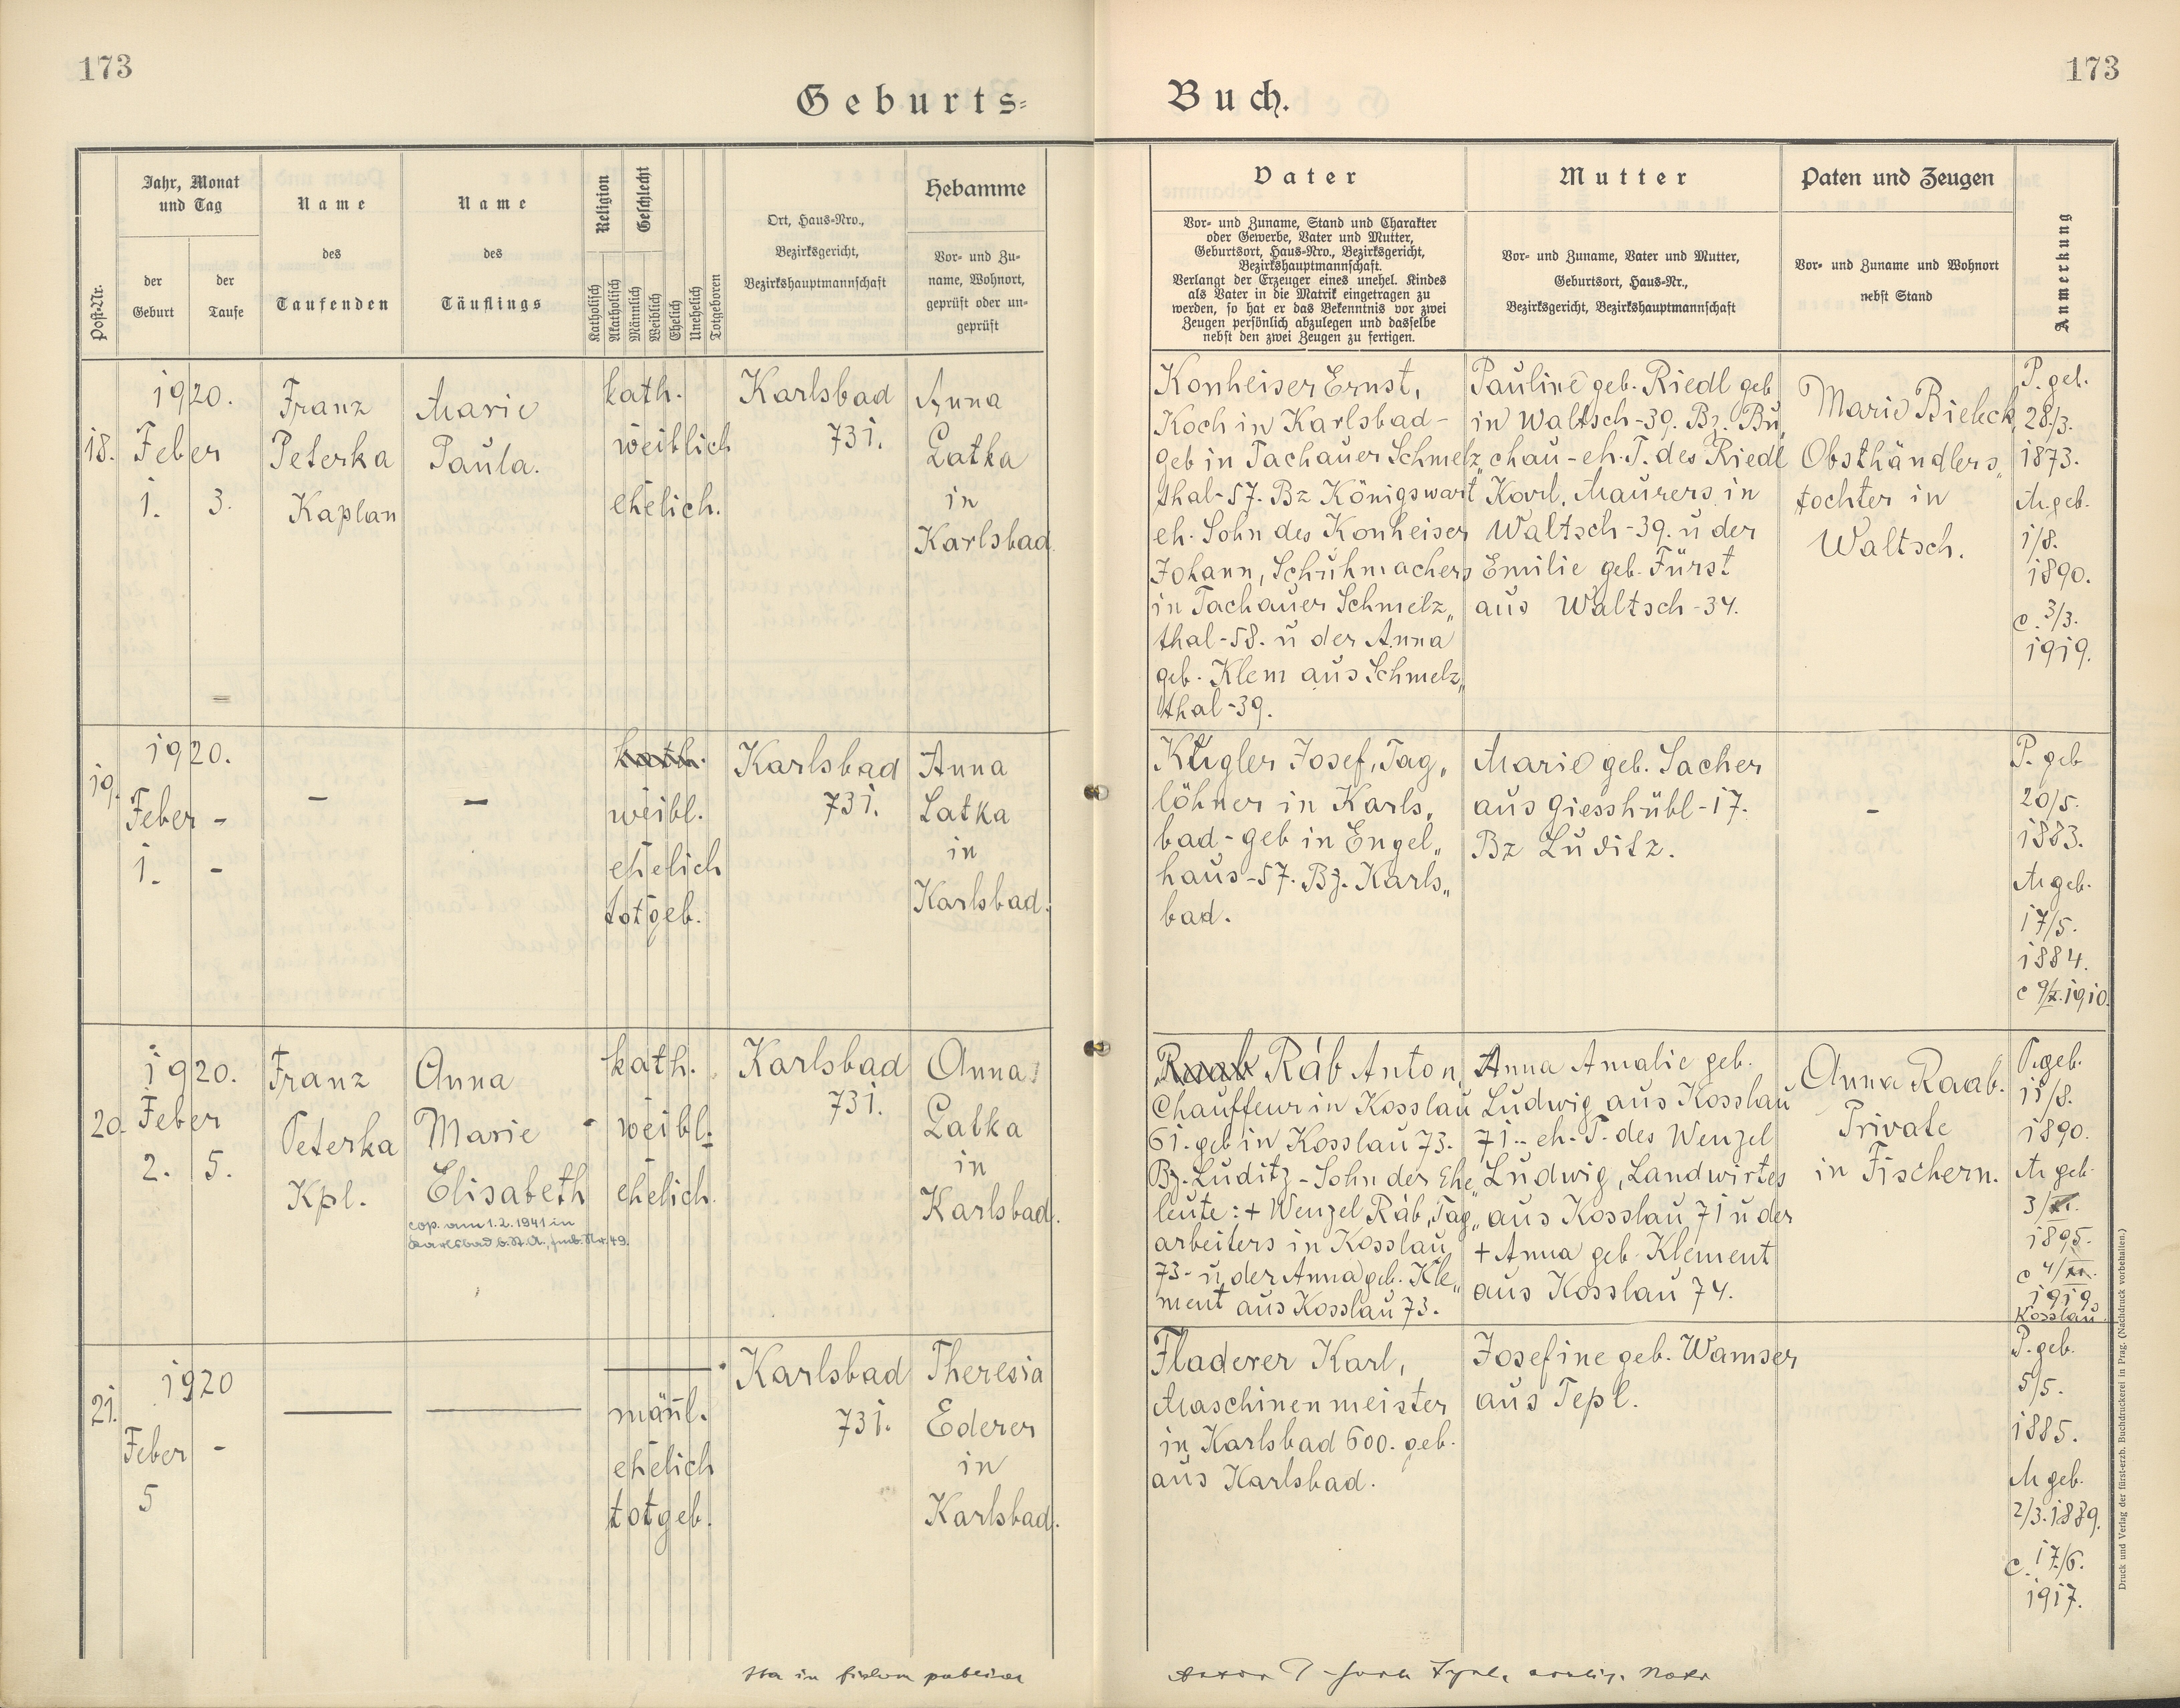 173
173
Geburts-
Buch.
Post-Nr.
Jahr, Monat
und Tag
der
Geburt
der
Taufe
Name
des
Taufenden
Name
des
Täuflings
Religion
Geschlecht
Katholisch
Akatholisch
Männlich
Weiblich
Ehelich
Unehelich
Totgeboren
Ort, Haus-Nro.,
Bezirksgericht,
Bezirkshauptmannschaft
Hebamme
Vor- und Zu-
name, Wohnort,
geprüft oder un-
geprüft
Vater
Vor- und Zuname, Stand und Charakter
oder Gewerbe, Vater und Mutter,
Geburtsort, Haus-Nro., Bezirksgericht,
Bezirkshauptmannschaft.
Verlangt der Erzeuger eines unehel. Kindes
als Vater in die Matrik eingetragen zu
werden, so hat er das Bekenntnis vor zwei
Zeugen persönlich abzulegen und dasselbe
nebst den zwei Zeugen zu fertigen.
Mutter
Vor- und Zuname, Vater und Mutter,
Geburtsort, Haus-Nr.,
Bezirksgericht, Bezirkshauptmannschaft
Paten und Zeugen
Vor- und Zuname und Wohnort
nebst Stand
Anmerkung
18.
1920.
Feber
1. 3.
Franz
Peterka
Kaplan
Marie
Paula.
kath.
weiblich
ehelich.
Karlsbad
731.
Anna
Latka
in
Karlsbad
Konheiser Ernst,
Koch in Karlsbad-
geb in Tachauer Schmelz„
thal-57. Bz Königswart
eh. Sohn des Konheiser
Johann, Schuhmachers
in Tachauer Schmelz„
thal-58. u der Anna
geb. Klem aus Schmelz„
thal-39.
Pauline geb. Riedl geb
in Waltsch-39. Bz. Bu„
chau-eh. T. des Riedl
Karl, Maurers in
Waltsch-39. u der
Emilie geb. Fürst
aus Waltsch-34.
Marie Bieleck,
Obsthändlers„
tochter in
Waltsch.
P. geb.
28/3.
1873.
M. geb.
1/8.
1890.
c. 3/3.
1919.
19.
1920.
Feber -
1. -
-
-
kath.
weibl.
ehelich
totgeb.
Karlsbad
731.
Anna
Latka
in
Karlsbad.
Kugler Josef, Tag„
löhner in Karls„
bad-geb in Engel„
haus-57. Bz. Karls„
bad.
Marie geb. Sacher
aus Giesshübl-17.
Bz Luditz.
-
P. geb
20/5.
1883.
M geb.
17/5.
1884.
c 9/X. 1910.
20.
1920.
Feber
2. 5.
Franz
Peterka
Kpl.
Anna
Marie
Elisabeth
cop. am 1.2.1941 in
Karlsbad b. St. A., fmb. Nr. 49.
kath.
weibl.
ehelich.
Karlsbad
731.
Anna
Latka
in
Karlsbad.
Raab Ráb Anton,
Chauffeur in Kosslau
61. geb in Kosslau 73.
Bz. Luditz - Sohn der Ehe„
leute: + Wenzel Ráb, Tag„
arbeiters in Kosslau
73- u der Anna geb. Kle„
ment aus Kosslau 73.
Anna Amalie geb.
Ludwig aus Kosslau
71.- eh. T. des Wenzel
Ludwig, Landwirtes
aus Kosslau 71 u der
+ Anna geb. Klement
aus Kosslau 74.
Anna Raab.
Private
in Fischern.
P. geb.
11/8.
1890.
M geb.
3/
1895.
c 4/
1919.
Kosslau
21.
1920
Feber -
5
männl.
ehelich
totgeb.
Karlsbad
731.
Theresia
Ederer
in
Karlsbad.
Fladerer Karl,
Maschinenmeister
in Karlsbad 600. geb.
aus Karlsbad.
Josefine geb. Wamser
aus Tepl.
P. geb.
5/5.
1885.
M geb.
2/3. 1889.
c. 17/6.
1917.
Druck und Verlag der fürst-erzb. Buchdruckerei in Prag. (Nachdruck vorbehalten.)